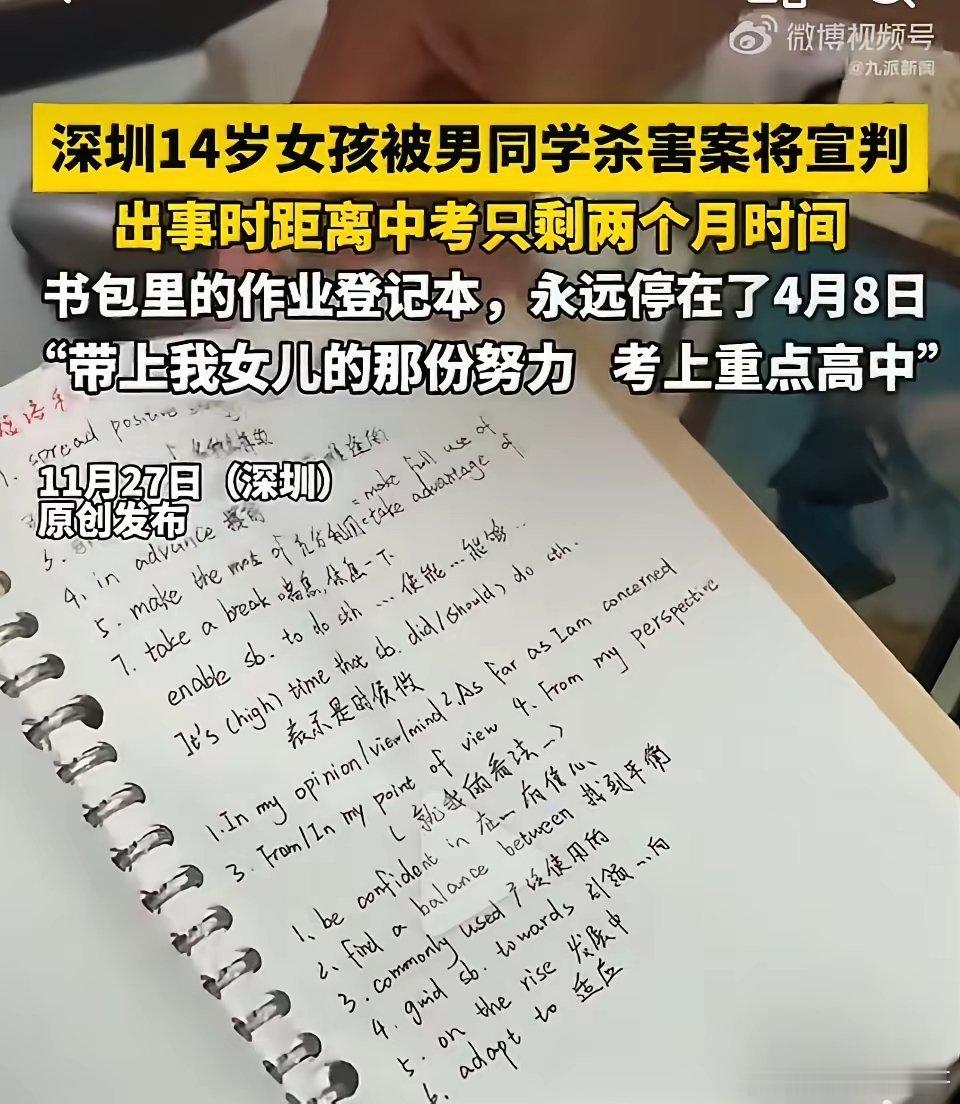 微博视频号
@九派新闻
深圳14岁女孩被男同学杀害案将宣判
出事时距离中考只剩两个月时间
书包里的作业登记本，永远停在了4月8日
“带上我女儿的那份努力 考上重点高中”
11月27日（深圳）
原创发布
1. spread positive
4. in advance 提前 = make full use of
5. make the most of 充分利用 = take advantage of
7. take a break 喘息,休息一下
enable sb. to do sth … 使能…能够..
It's (high) time that sb. did/(should) do sth.
表示是时候做
1.In my opinion/view/mind 2.As far as I am concerned
3. From/In my point of view 4. From my perspective
就我的看法
1. be confident in 在…有信心
2. find a balance between 找到平衡
3. commonly used 广泛使用的
4. guid sb. towards 引领…向
5. on the rise 发展中
6. adapt to 适应